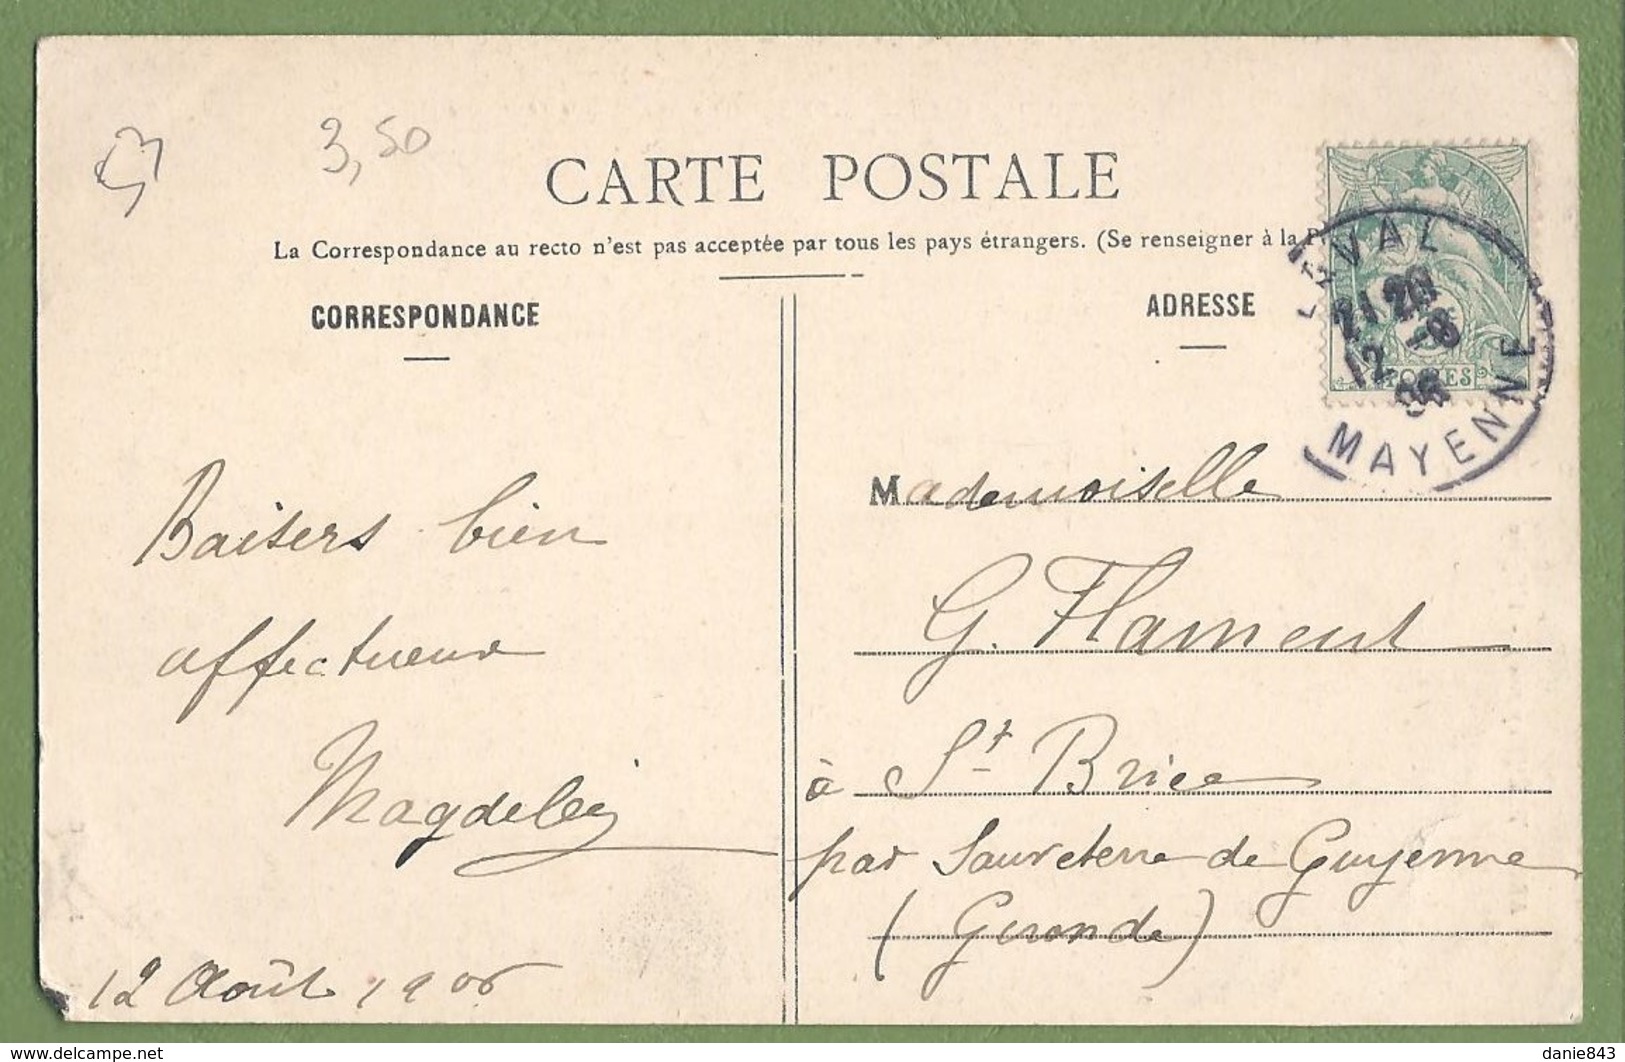 53
3,50
CARTE POSTALE
La Correspondance au recto n'est pas acceptée par tous les pays étrangers. (Se renseigner à la P
CORRESPONDANCE
ADRESSE
LAVAL
21 20
12 -8
06
MAYENNE
POSTES
Baisers bien
affectueux
12 Août 1906
Mademoiselle
G. Flament
à St Brice
par Sauveterre de Guyenne
(Gironde)
danie843
delcampe.net